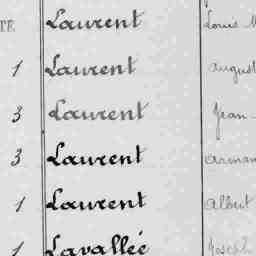 TE Laurent Louis M
1 Laurent August
3 Laurent Jean-
3 Laurent Arman
1 Laurent Albert
1 Lavallée Joseph